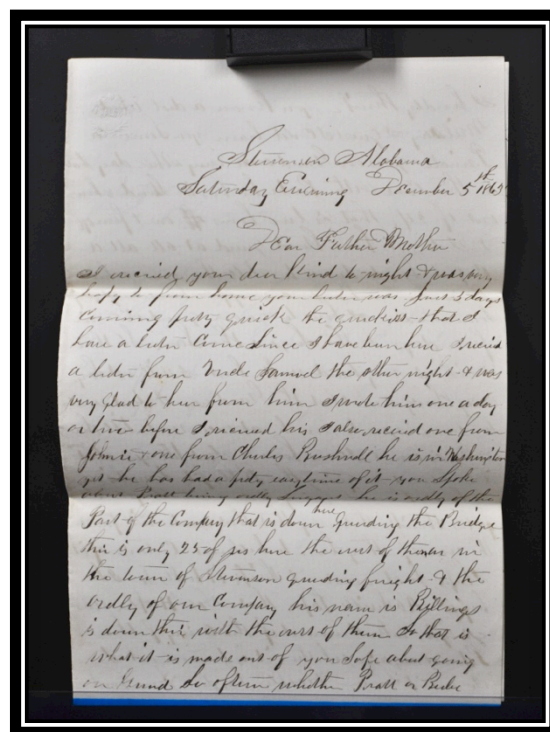 Stevenson Alabama
Saturday Evening December 5th 1863
Dear Father & Mother
I recieved your dear kind to night & was very
hapy to from home your letter was just 3 days
coming prty quick the quickest that I
have a letter come since I have been here I recieved
a letter from Uncle Samuel the other night & was
very glad to her from him I wrote him one a day
or two before I recieved his I also recieved one from
Johnie & one from Charles Bushnell he is in Washington
yet he has had a prty easy time of it you Spoke
about Pratt being ordly he is ordly of the
Part of the Company that is down here guarding the Bridge
this is only 25 of us here the rest of them are in
the town of Stevenson guarding freight & the
ordly of our Company his name is Billings
is down thir with the rest of them So that is
what it is made out of you Sope about going
on so often whether Pratt or